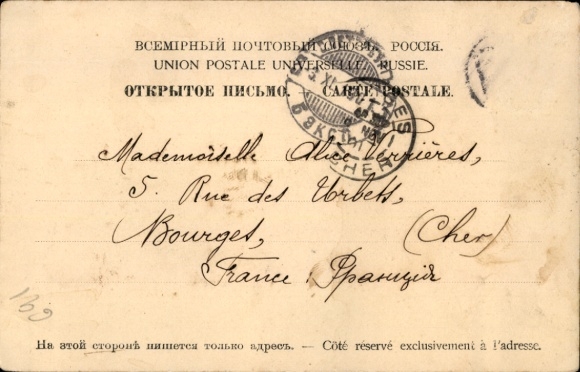 ВСЕМІРНЫЙ ПОЧТОВЫЙ СОЮЗЪ. РОССІЯ.
UNION POSTALE UNIVERSELLE. RUSSIE.
ОТКРЫТОЕ ПИСЬМО. — CARTE POSTALE.
CHER
Mademoiselle Alice Verrières,
5, Rue des Urbets,
Bourges, (Cher)
France, Франція
На этой сторонѣ пишется только адресъ. — Côté réservé exclusivement à l'adresse.